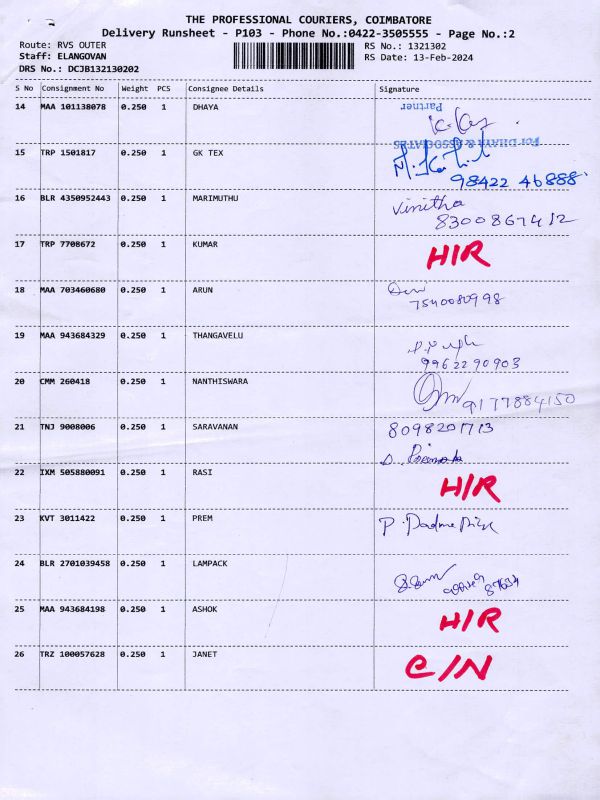 THE PROFESSIONAL COURIERS, COIMBATORE
Delivery Runsheet - P103 - Phone No.:0422-3505555 - Page No.:2
Route: RVS OUTER RS No.: 1321302
Staff: ELANGOVAN RS Date: 13-Feb-2024
DRS No.: DCJB132130202
S No Consignment No Weight PCS Consignee Details Signature
14 MAA 101138078 0.250 1 DHAYA Partner
For DHAYA & ASSOCIATES
15 TRP 1501817 0.250 1 GK TEX
98422 46888
16 BLR 4350952443 0.250 1 MARIMUTHU Vinitha
8300867412
17 TRP 7708672 0.250 1 KUMAR H/R
18 MAA 703460680 0.250 1 ARUN
7540080998
19 MAA 943684329 0.250 1 THANGAVELU
9962290903
20 CMM 260418 0.250 1 NANTHISWARA 9177884150
21 TNJ 9008006 0.250 1 SARAVANAN 8098201713
22 IXM 505880091 0.250 1 RASI H/R
23 KVT 3011422 0.250 1 PREM P. Padma Priya
24 BLR 2701039458 0.250 1 LAMPACK
25 MAA 943684198 0.250 1 ASHOK H/R
26 TRZ 100057628 0.250 1 JANET C/N